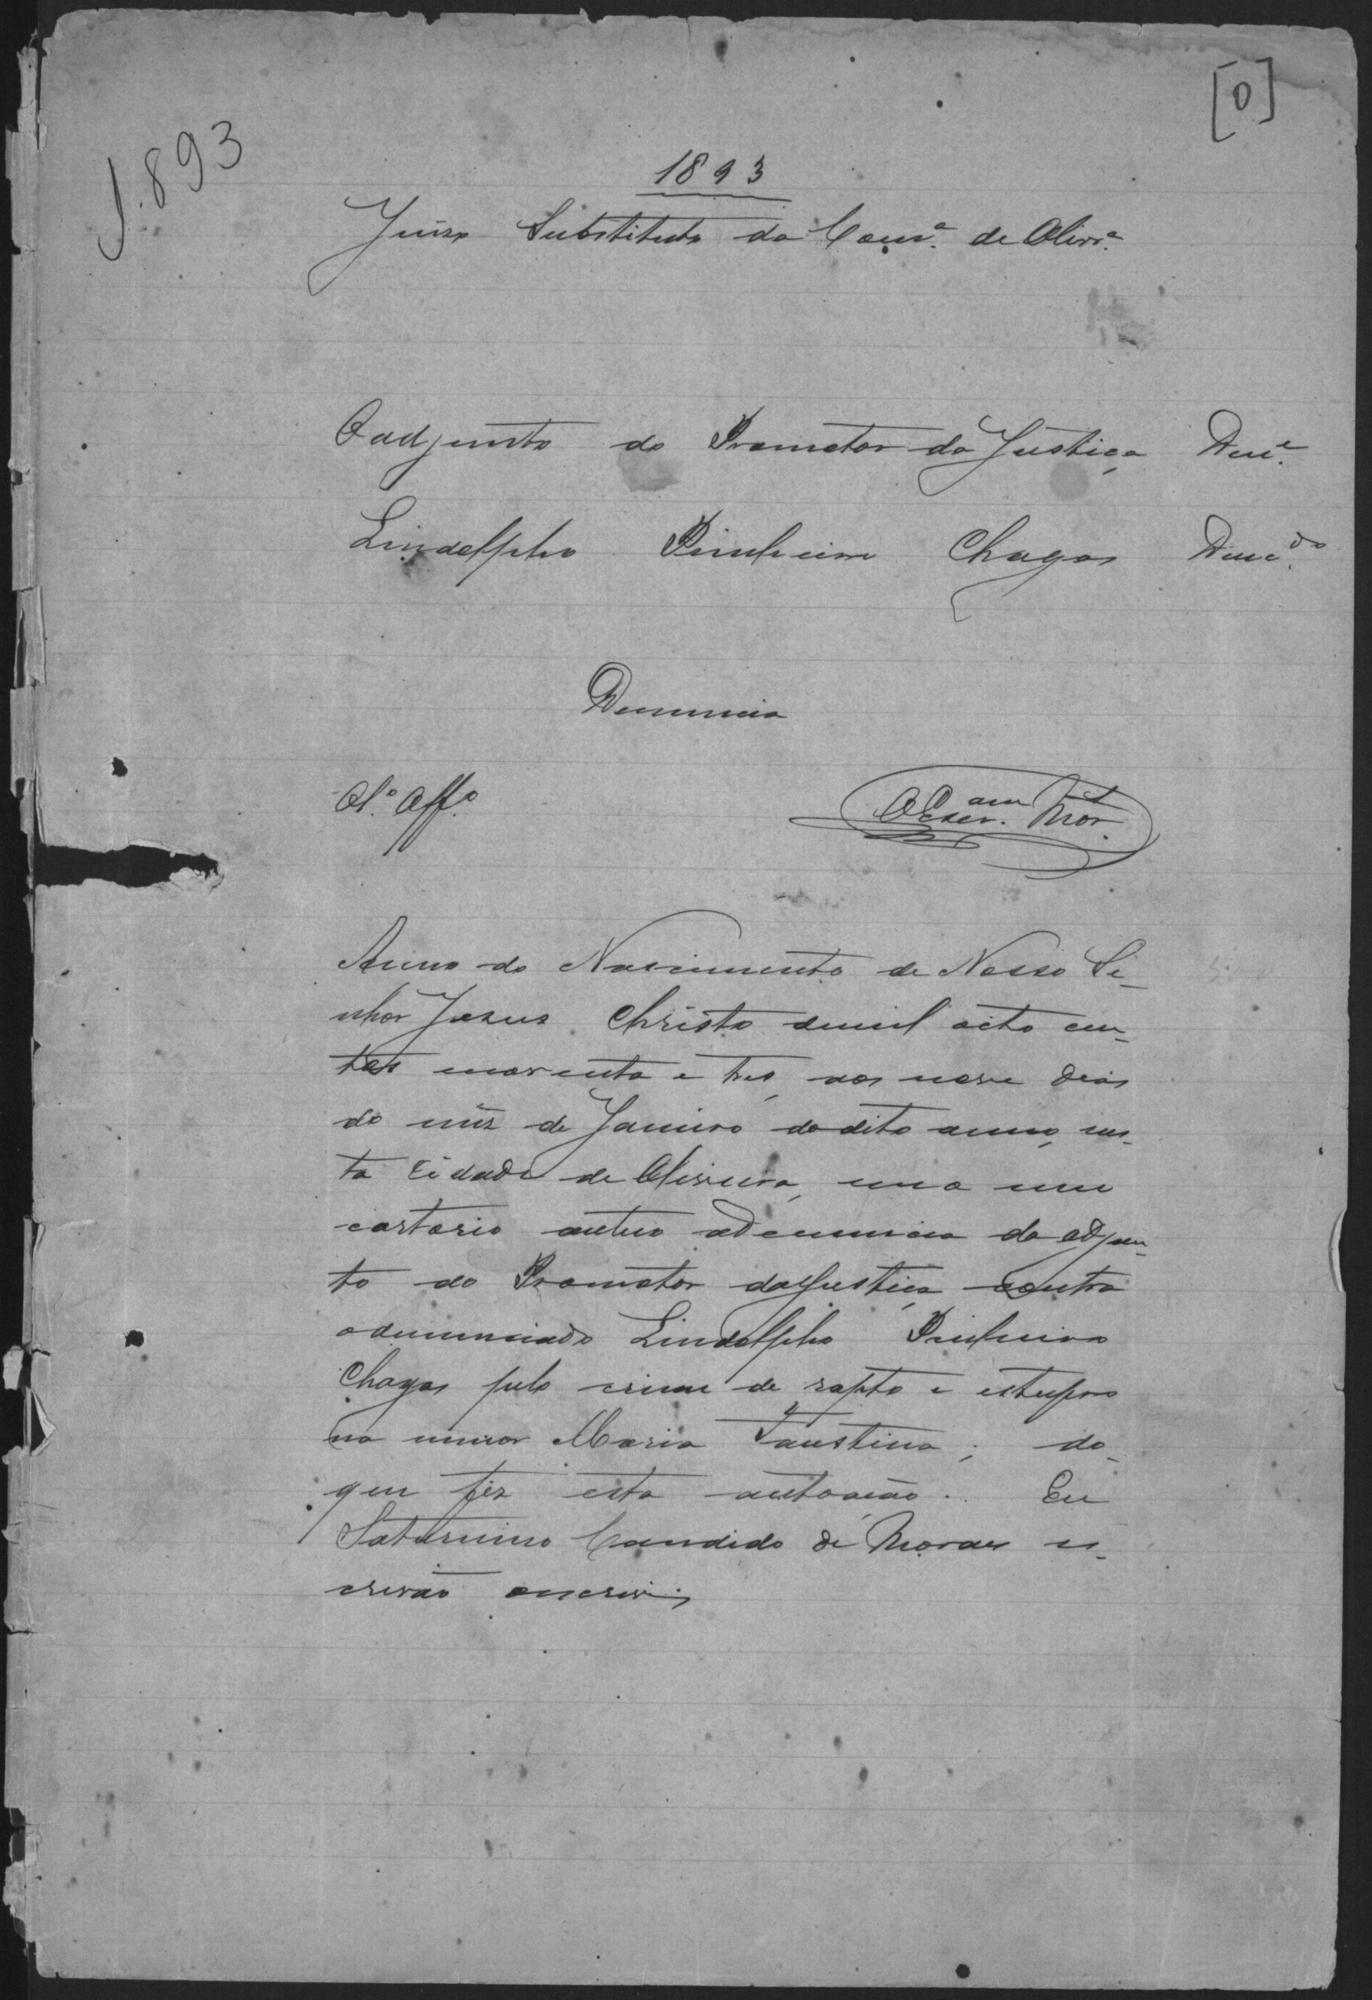 [0]
1893
1893
Juizo Substituto da Comª. de Olivrª.
O adjunto do Promotor da Justiça Dene.
Lindolpho Pinheiro Chagas Denc.do
Denuncia
Al.º Aff.º
O Escr.am Mor.
Anno do Nascimento de Nosso Se-
nhor Jesus Christo de mil oito cen-
tos noventa e tres, aos nove dias
do mez de Janeiro do dito anno, nes-
ta Cidade de Oliveira, em o meu
cartorio autuo a denuncia do adjun-
to do Promotor da Justiça contra
o denunciado Lindolpho Pinheiro
Chagas pelo crime de rapto e estupro
na menor Maria Faustina; do
que fiz esta autoação. Eu
Saturnino Candido de Moraes es-
crivão o escrevi;